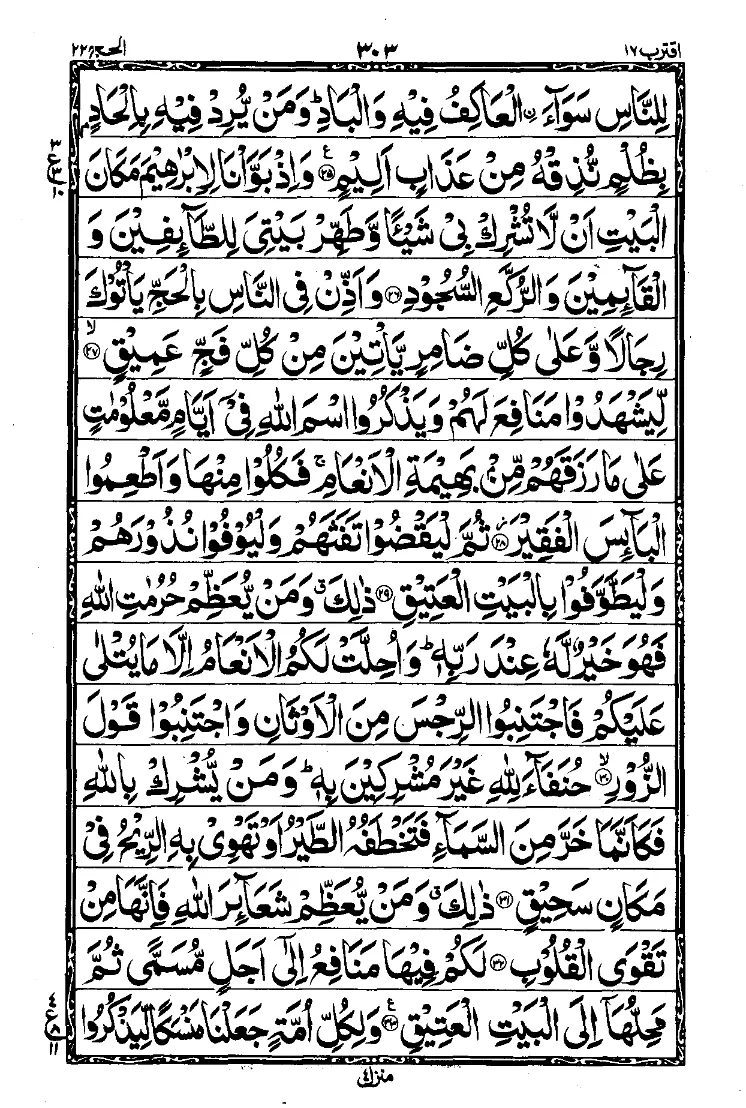 اقترب ١٧
٣٠٣
الحج ٢٢
لِلنَّاسِ سَوَآءَ ۨ الْعَاكِفُ فِيْهِ وَالْبَادِ ؕ وَمَنْ يُّرِدْ فِيْهِ بِاِلْحَادٍۭ
بِظُلْمٍ نُّذِقْهُ مِنْ عَذَابٍ اَلِيْمٍ ۧ﴿٢٥﴾ وَاِذْ بَوَّاْنَا لِاِبْرٰهِيْمَ مَكَانَ
الْبَيْتِ اَنْ لَّا تُشْرِكْ بِىْ شَيْـًٔا وَّطَهِّرْ بَيْتِىَ لِلطَّآئِفِيْنَ وَ
الْقَآئِمِيْنَ وَالرُّكَّعِ السُّجُوْدِ ﴿٢٦﴾ وَاَذِّنْ فِى النَّاسِ بِالْحَجِّ يَاْتُوْكَ
رِجَالًا وَّعَلٰى كُلِّ ضَامِرٍ يَّاْتِيْنَ مِنْ كُلِّ فَجٍّ عَمِيْقٍ ۙ﴿٢٧﴾
لِّيَشْهَدُوْا مَنَافِعَ لَهُمْ وَيَذْكُرُوا اسْمَ اللّٰهِ فِىْۤ اَيَّامٍ مَّعْلُوْمٰتٍ
عَلٰى مَا رَزَقَهُمْ مِّنْۢ بَهِيْمَةِ الْاَنْعَامِ ۚ فَكُلُوْا مِنْهَا وَاَطْعِمُوا
الْبَآئِسَ الْفَقِيْرَ ؗ﴿٢٨﴾ ثُمَّ لْيَقْضُوْا تَفَثَهُمْ وَلْيُوْفُوْا نُذُوْرَهُمْ
وَلْيَطَّوَّفُوْا بِالْبَيْتِ الْعَتِيْقِ ﴿٢٩﴾ ذٰلِكَ ۗ وَمَنْ يُّعَظِّمْ حُرُمٰتِ اللّٰهِ
فَهُوَ خَيْرٌ لَّهٗ عِنْدَ رَبِّهٖ ؕ وَاُحِلَّتْ لَكُمُ الْاَنْعَامُ اِلَّا مَا يُتْلٰى
عَلَيْكُمْ فَاجْتَنِبُوا الرِّجْسَ مِنَ الْاَوْثَانِ وَاجْتَنِبُوْا قَوْلَ
الزُّوْرِ ۙ﴿٣٠﴾ حُنَفَآءَ لِلّٰهِ غَيْرَ مُشْرِكِيْنَ بِهٖ ؕ وَمَنْ يُّشْرِكْ بِاللّٰهِ
فَكَاَنَّمَا خَرَّ مِنَ السَّمَآءِ فَتَخْطَفُهُ الطَّيْرُ اَوْ تَهْوِىْ بِهِ الرِّيْحُ فِىْ
مَكَانٍ سَحِيْقٍ ﴿٣١﴾ ذٰلِكَ ۗ وَمَنْ يُّعَظِّمْ شَعَآئِرَ اللّٰهِ فَاِنَّهَا مِنْ
تَقْوَى الْقُلُوْبِ ﴿٣٢﴾ لَكُمْ فِيْهَا مَنَافِعُ اِلٰٓى اَجَلٍ مُّسَمًّى ثُمَّ
مَحِلُّهَاۤ اِلَى الْبَيْتِ الْعَتِيْقِ ۧ﴿٣٣﴾ وَلِكُلِّ اُمَّةٍ جَعَلْنَا مَنْسَكًا لِّيَذْكُرُوا
منزل ٤